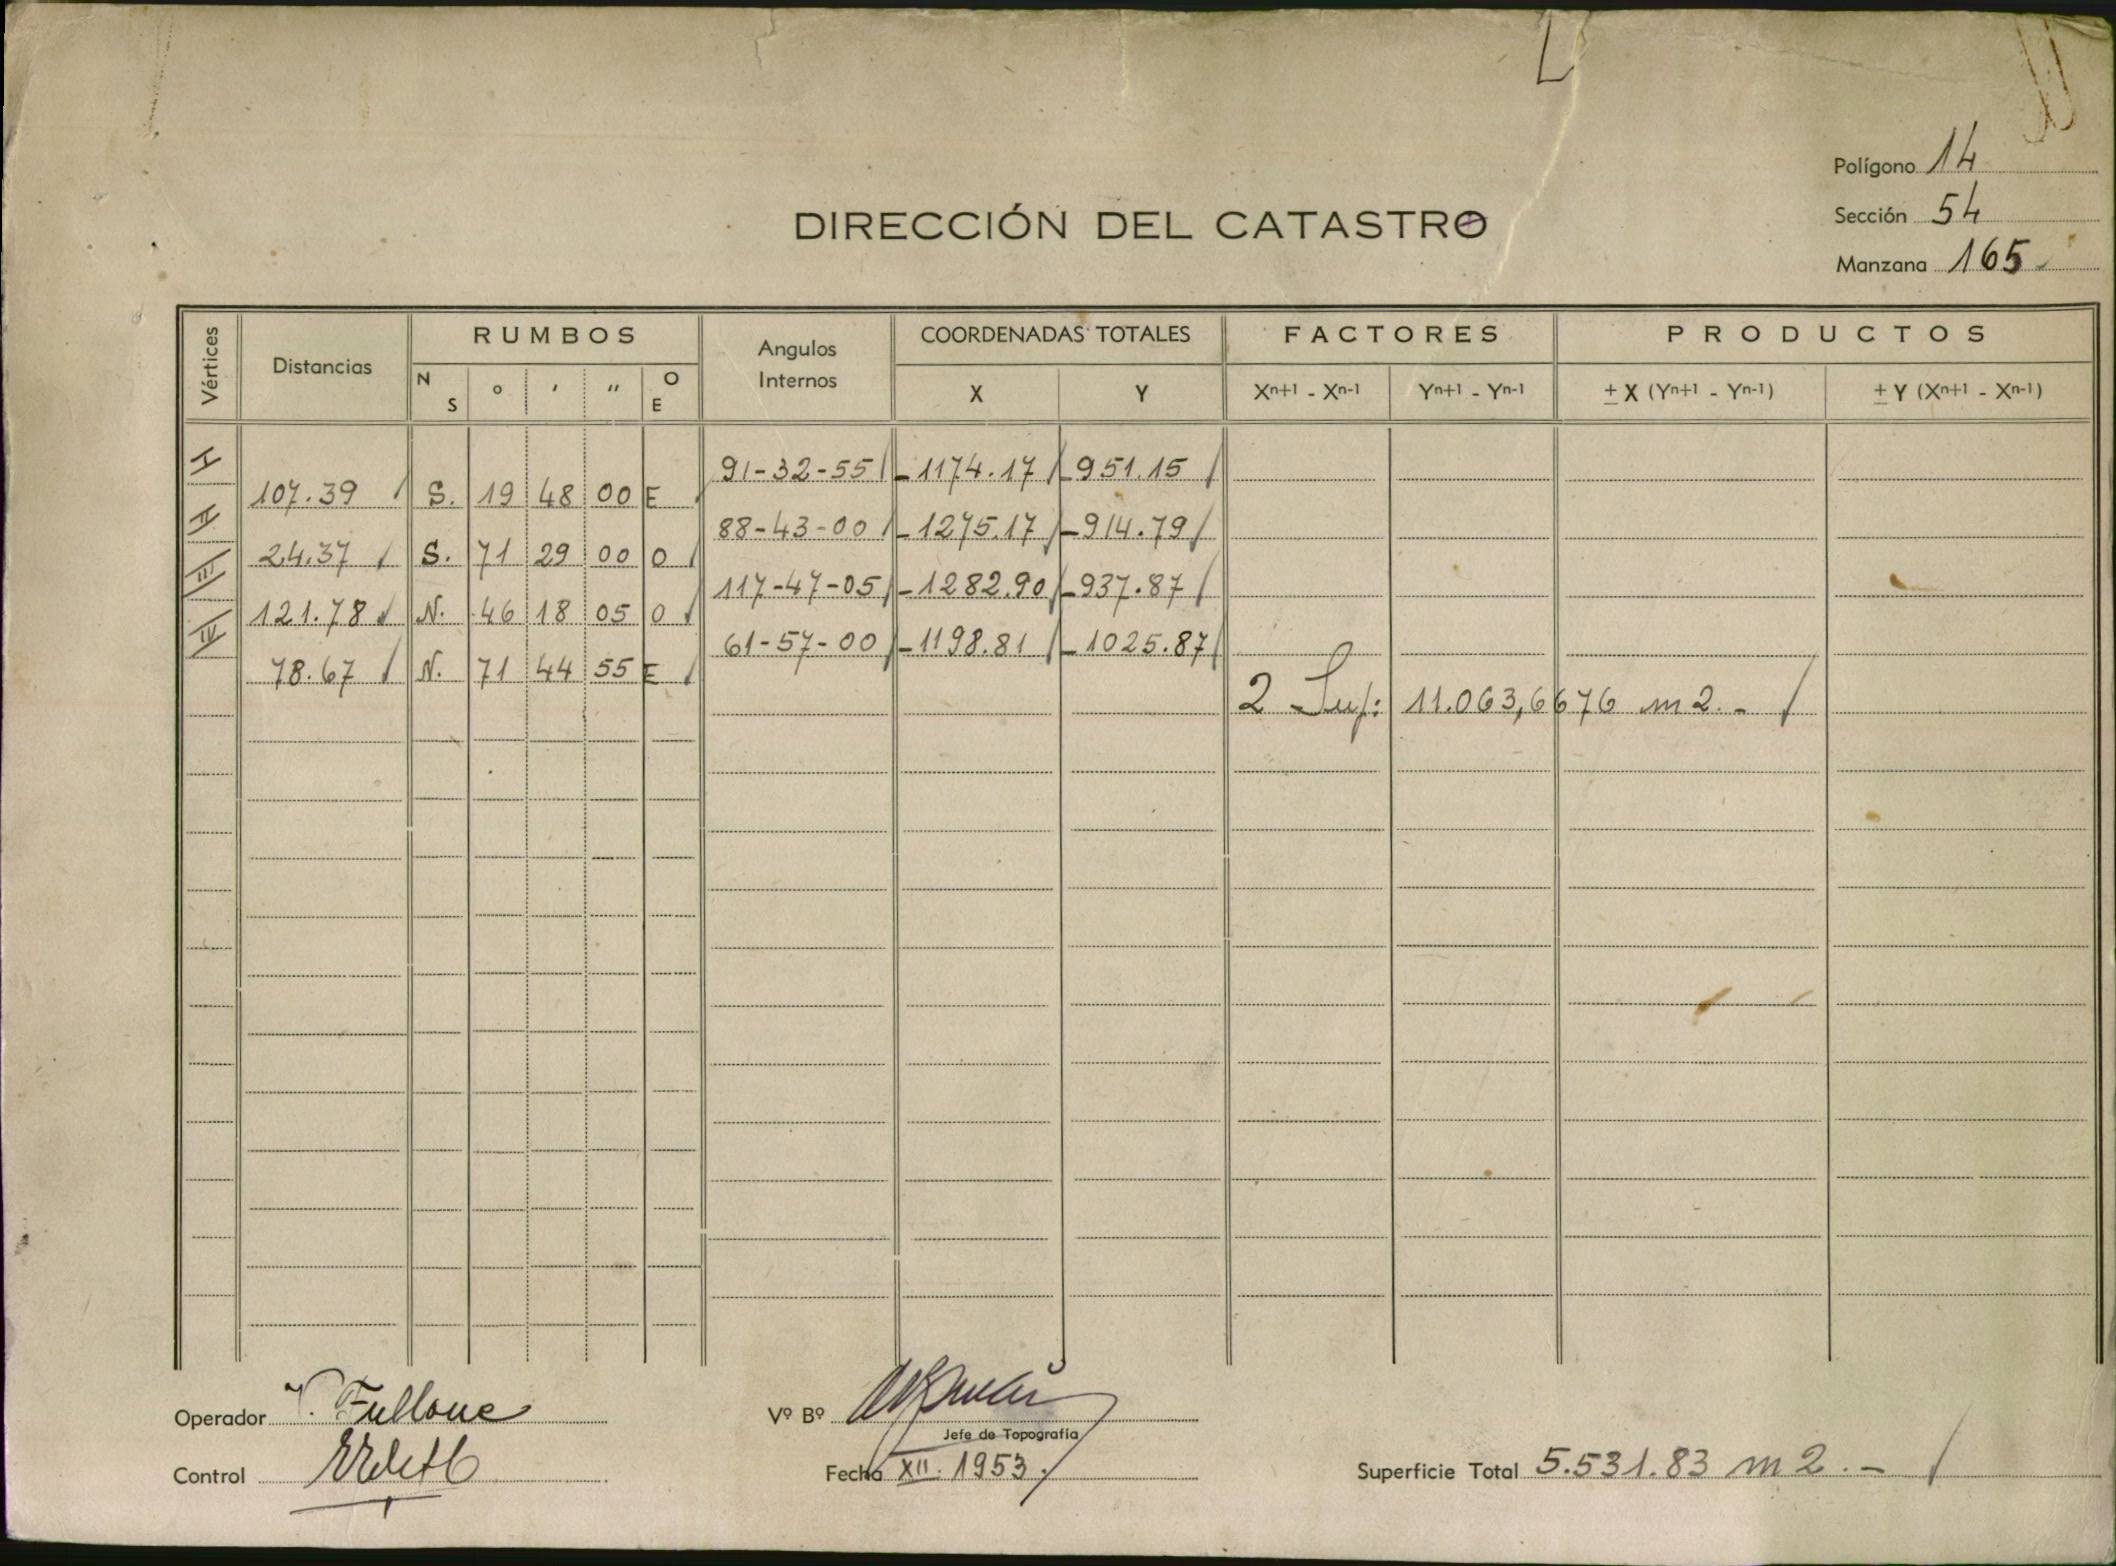 L
Polígono 14
Sección 54
Manzana 165
DIRECCIÓN DEL CATASTRO
Vértices Distancias RUMBOS Angulos Internos COORDENADAS TOTALES FACTORES PRODUCTOS
N S ° ' " O E X Y Xn+1 - Xn-1 Yn+1 - Yn-1 ± X (Yn+1 - Yn-1) ± Y (Xn+1 - Xn-1)
I 91-32-55 -1174.17 -951.15
107.39 S. 19 48 00 E
II 88-43-00 -1275.17 -914.79
24.37 S. 71 29 00 O
III 117-47-05 -1282.90 -937.87
121.78 N. 46 18 05 O
IV 61-57-00 -1198.81 -1025.87
78.67 N. 71 44 55 E
2 Sup: 11.063,6676 m2.-
Operador V. Fullone
Vº Bº
Jefe de Topografía
Control
Fecha XII. 1953.
Superficie Total 5.531.83 m2.-